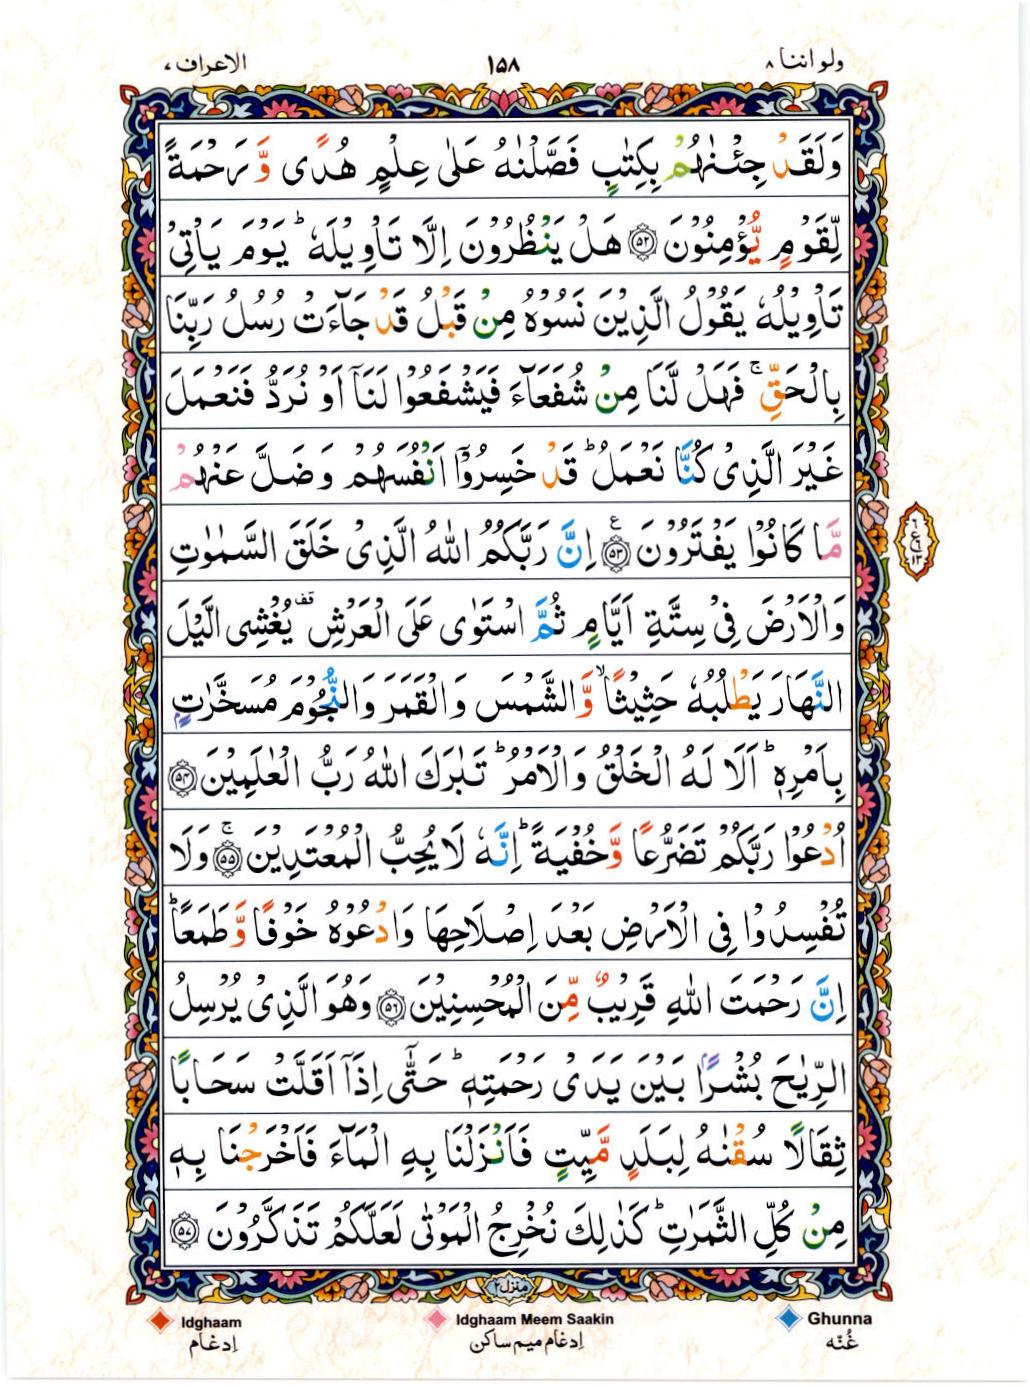 ولواننا ۸ ۱۵۸ الاعراف ۷
وَلَقَدْ جِئْنٰهُمْ بِكِتٰبٍ فَصَّلْنٰهُ عَلٰى عِلْمٍ هُدًى وَّ رَحْمَةً
لِّقَوْمٍ يُّؤْمِنُوْنَ ﴿۵۲﴾ هَلْ يَنْظُرُوْنَ اِلَّا تَاْوِيْلَهٗ ؕ يَوْمَ يَاْتِيْ
تَاْوِيْلُهٗ يَقُوْلُ الَّذِيْنَ نَسُوْهُ مِنْ قَبْلُ قَدْ جَآءَتْ رُسُلُ رَبِّنَا
بِالْحَقِّ ۚ فَهَلْ لَّنَا مِنْ شُفَعَآءَ فَيَشْفَعُوْا لَنَاۤ اَوْ نُرَدُّ فَنَعْمَلَ
غَيْرَ الَّذِيْ كُنَّا نَعْمَلُ ؕ قَدْ خَسِرُوْۤا اَنْفُسَهُمْ وَ ضَلَّ عَنْهُمْ
مَّا كَانُوْا يَفْتَرُوْنَ ﴿۵۳﴾ ع اِنَّ رَبَّكُمُ اللّٰهُ الَّذِيْ خَلَقَ السَّمٰوٰتِ
وَالْاَرْضَ فِيْ سِتَّةِ اَيَّامٍ ثُمَّ اسْتَوٰى عَلَى الْعَرْشِ قف يُغْشِى الَّيْلَ
النَّهَارَ يَطْلُبُهٗ حَثِيْثًا ۙ وَّالشَّمْسَ وَالْقَمَرَ وَالنُّجُوْمَ مُسَخَّرٰتٍۭ
بِاَمْرِهٖ ؕ اَلَا لَهُ الْخَلْقُ وَالْاَمْرُ ؕ تَبٰرَكَ اللّٰهُ رَبُّ الْعٰلَمِيْنَ ﴿۵۴﴾
اُدْعُوْا رَبَّكُمْ تَضَرُّعًا وَّخُفْيَةً ؕ اِنَّهٗ لَا يُحِبُّ الْمُعْتَدِيْنَ ﴿۵۵﴾ ۚ وَلَا
تُفْسِدُوْا فِى الْاَرْضِ بَعْدَ اِصْلَاحِهَا وَادْعُوْهُ خَوْفًا وَّطَمَعًا ؕ
اِنَّ رَحْمَتَ اللّٰهِ قَرِيْبٌ مِّنَ الْمُحْسِنِيْنَ ﴿۵۶﴾ وَهُوَ الَّذِيْ يُرْسِلُ
الرِّيٰحَ بُشْرًۢا بَيْنَ يَدَيْ رَحْمَتِهٖ ؕ حَتّٰۤى اِذَاۤ اَقَلَّتْ سَحَابًا
ثِقَالًا سُقْنٰهُ لِبَلَدٍ مَّيِّتٍ فَاَنْزَلْنَا بِهِ الْمَآءَ فَاَخْرَجْنَا بِهٖ
مِنْ كُلِّ الثَّمَرٰتِ ؕ كَذٰلِكَ نُخْرِجُ الْمَوْتٰى لَعَلَّكُمْ تَذَكَّرُوْنَ ﴿۵۷﴾
منزل ۲
Idghaam Idghaam Meem Saakin Ghunna
اِدغام اِدغام میم ساکن غُنّہ